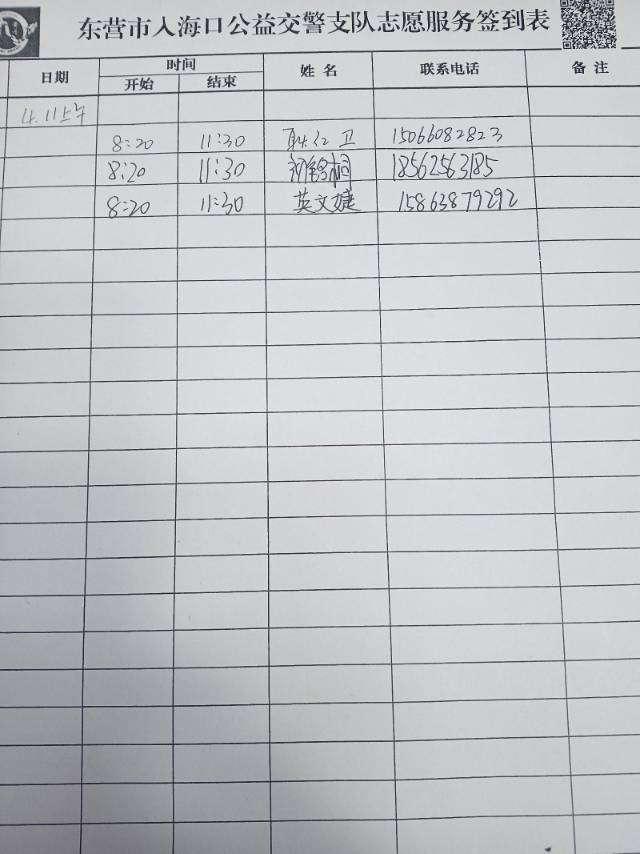 东营市入海口公益交警支队志愿服务签到表
日期 时间 姓名 联系电话 备注
开始 结束
4.11上午
8:20 11:30 耿红卫 15066082823
8:20 11:30 18562563185
8:20 11:30 英文婕 15863879292